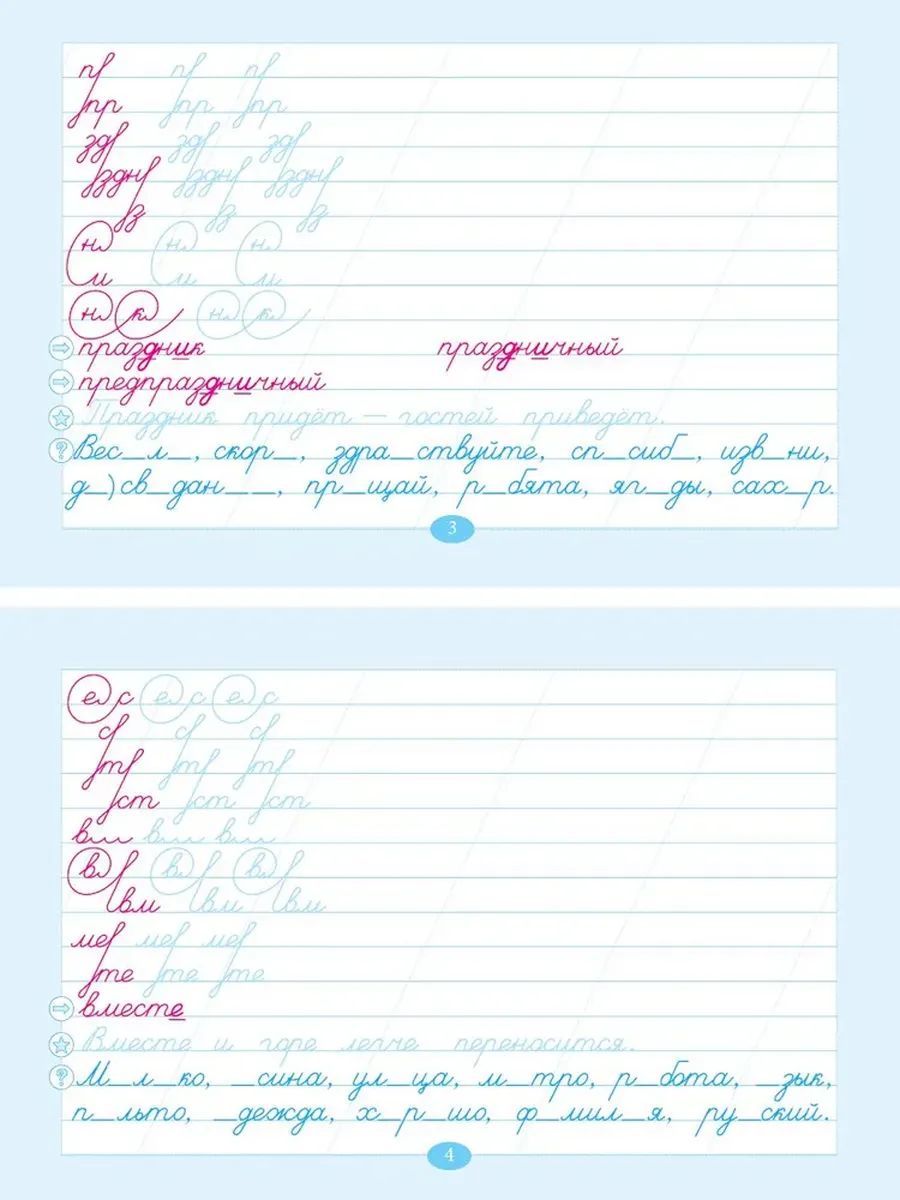 п п п
пр пр пр
зд зд зд
здн здн здн
з з з
н н н
и и и
н к н к
праздник праздничный
предпраздничный
Праздник придёт — гостей приведёт.
Вес_л_, скор_, здра_ствуйте, сп_сиб_, изв_ни,
д_)св_дан__, пр_щай, р_бята, яг_ды, сах_р.
3
е с е с е с
с с с
т т т
ст ст ст
в в в
в в в
вм вм вм
ме ме ме
те те те
вместе
Вместе и горе легче переносится.
М_л_ко, _сина, ул_ца, м_тро, р_бота, _зык,
п_льто, _дежда, х_р_шо, ф_мил_я, ру_ский.
4